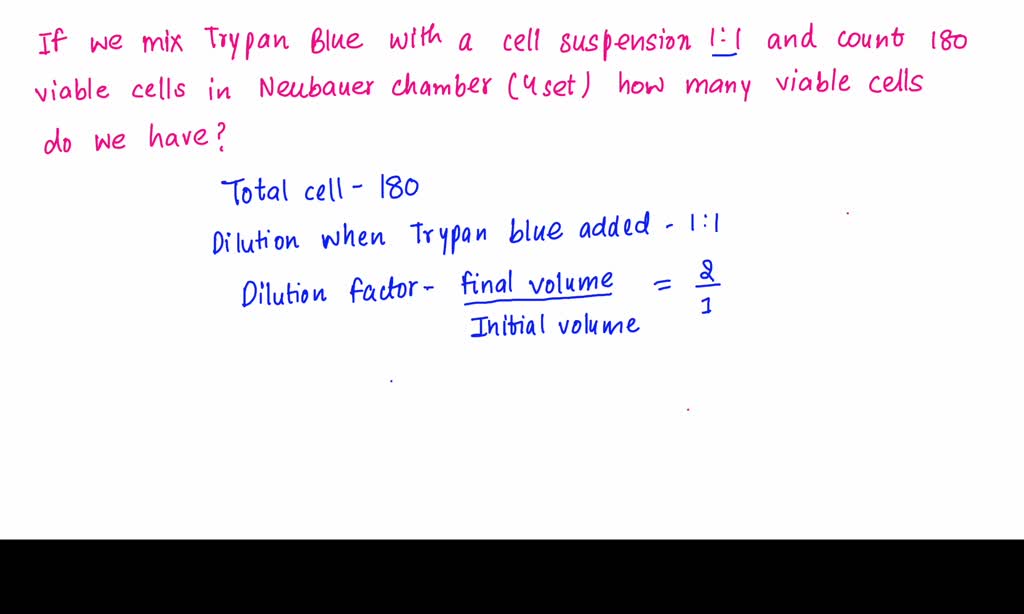 If we mix Trypan Blue with a cell suspension 1:1 and count 180
viable cells in Neubauer chamber (4 set) how many viable cells
do we have?
Total cell - 180
Dilution when Trypan blue added - 1:1
Dilution factor - final volume = 2
Initial volume 1